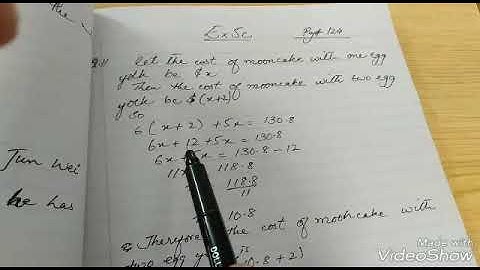 the
Ex 5c
Pg# 124
Q.11 let the cost of mooncake with one egg
yolk be $x
Then the cost of mooncake with two egg
yolk be $(x+2)
So
6(x+2) + 5x = 130.8
6x + 12 + 5x = 130.8
6x 5x = 130.8 - 12
11x 118.8
118.8
11
10.8
Therefore the cost of mooncake with
two egg is
10.8 + 2)
Jun Wei
he has
DOLL
Made with
VideoShow